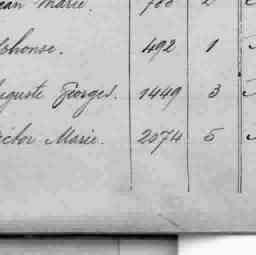 ean Marie. 788 2
lphonse. 492 1
uguste Georges. 1449 3
ictor Marie. 2074 5